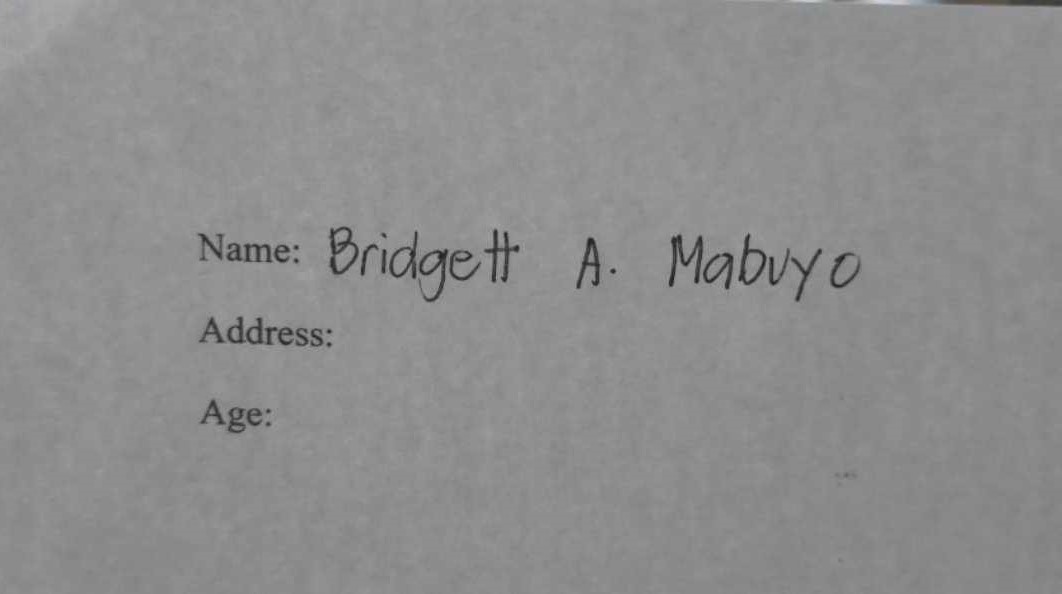 Name: Bridgett A. Mabuyo
Address:
Age: